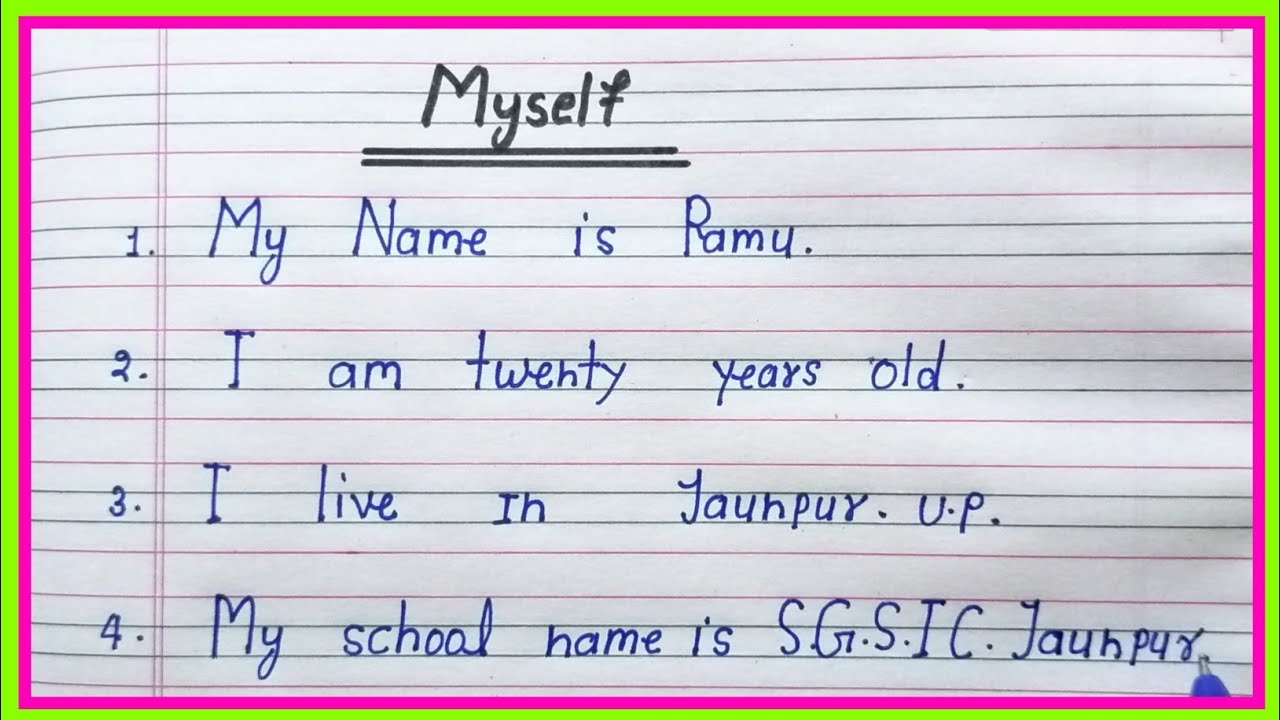 Myself
1. My Name is Ramu.
2. I am twenty years old.
3. I live In Jaunpur. U.P.
4. My school name is S.G.S.I C. Jaunpur.